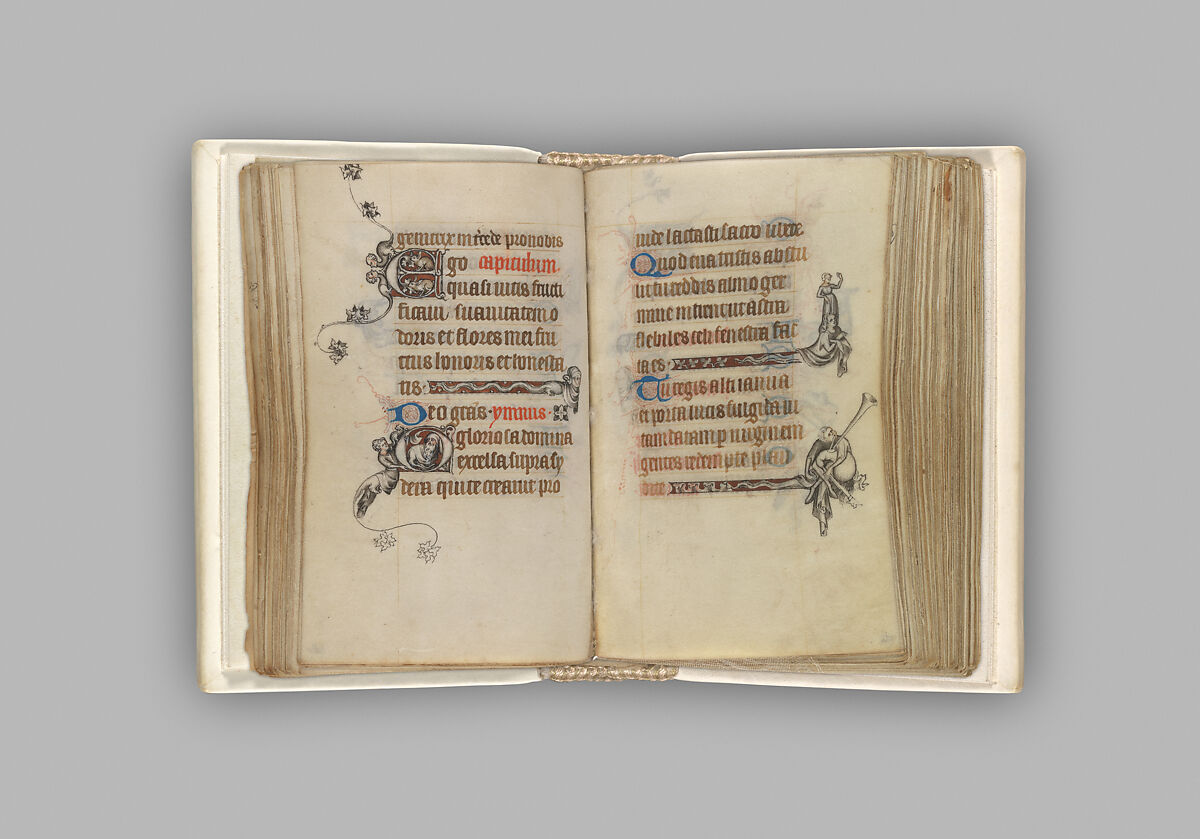 genitrix intcede pro nobis
Ego capitulum.
quasi uitis fructi
ficaui suauitatem o
doris et flores mei fru
ctus honoris et honesta
tis.
Deo gras. ymnus.
O gloriosa domina
excelsa supra sy
dera qui te creauit pro
uide lactasti sacro ubere
Quod eua tristis abstu
lit tu reddis almo ger
mine intrent ut astra
flebiles celi fenestra fac
ta es.
Tu regis alti ianua
et porta lucis fulgida ui
tam datam p uirginem
gentes redempte plau
dite